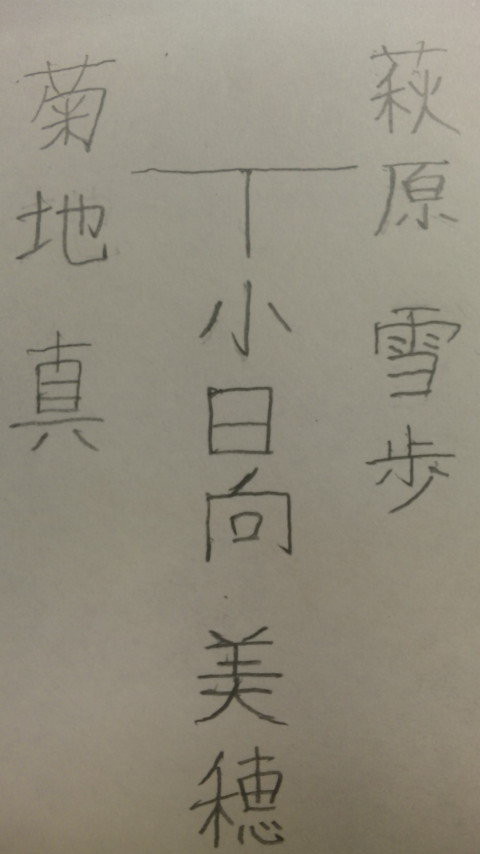 萩原 雪歩
小日向 美穂
菊地 真